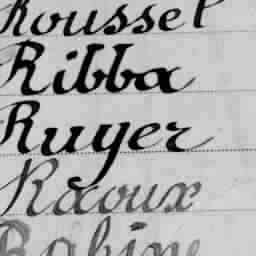 Roussel
Ribba
Ruyer
Raoux
Rabine